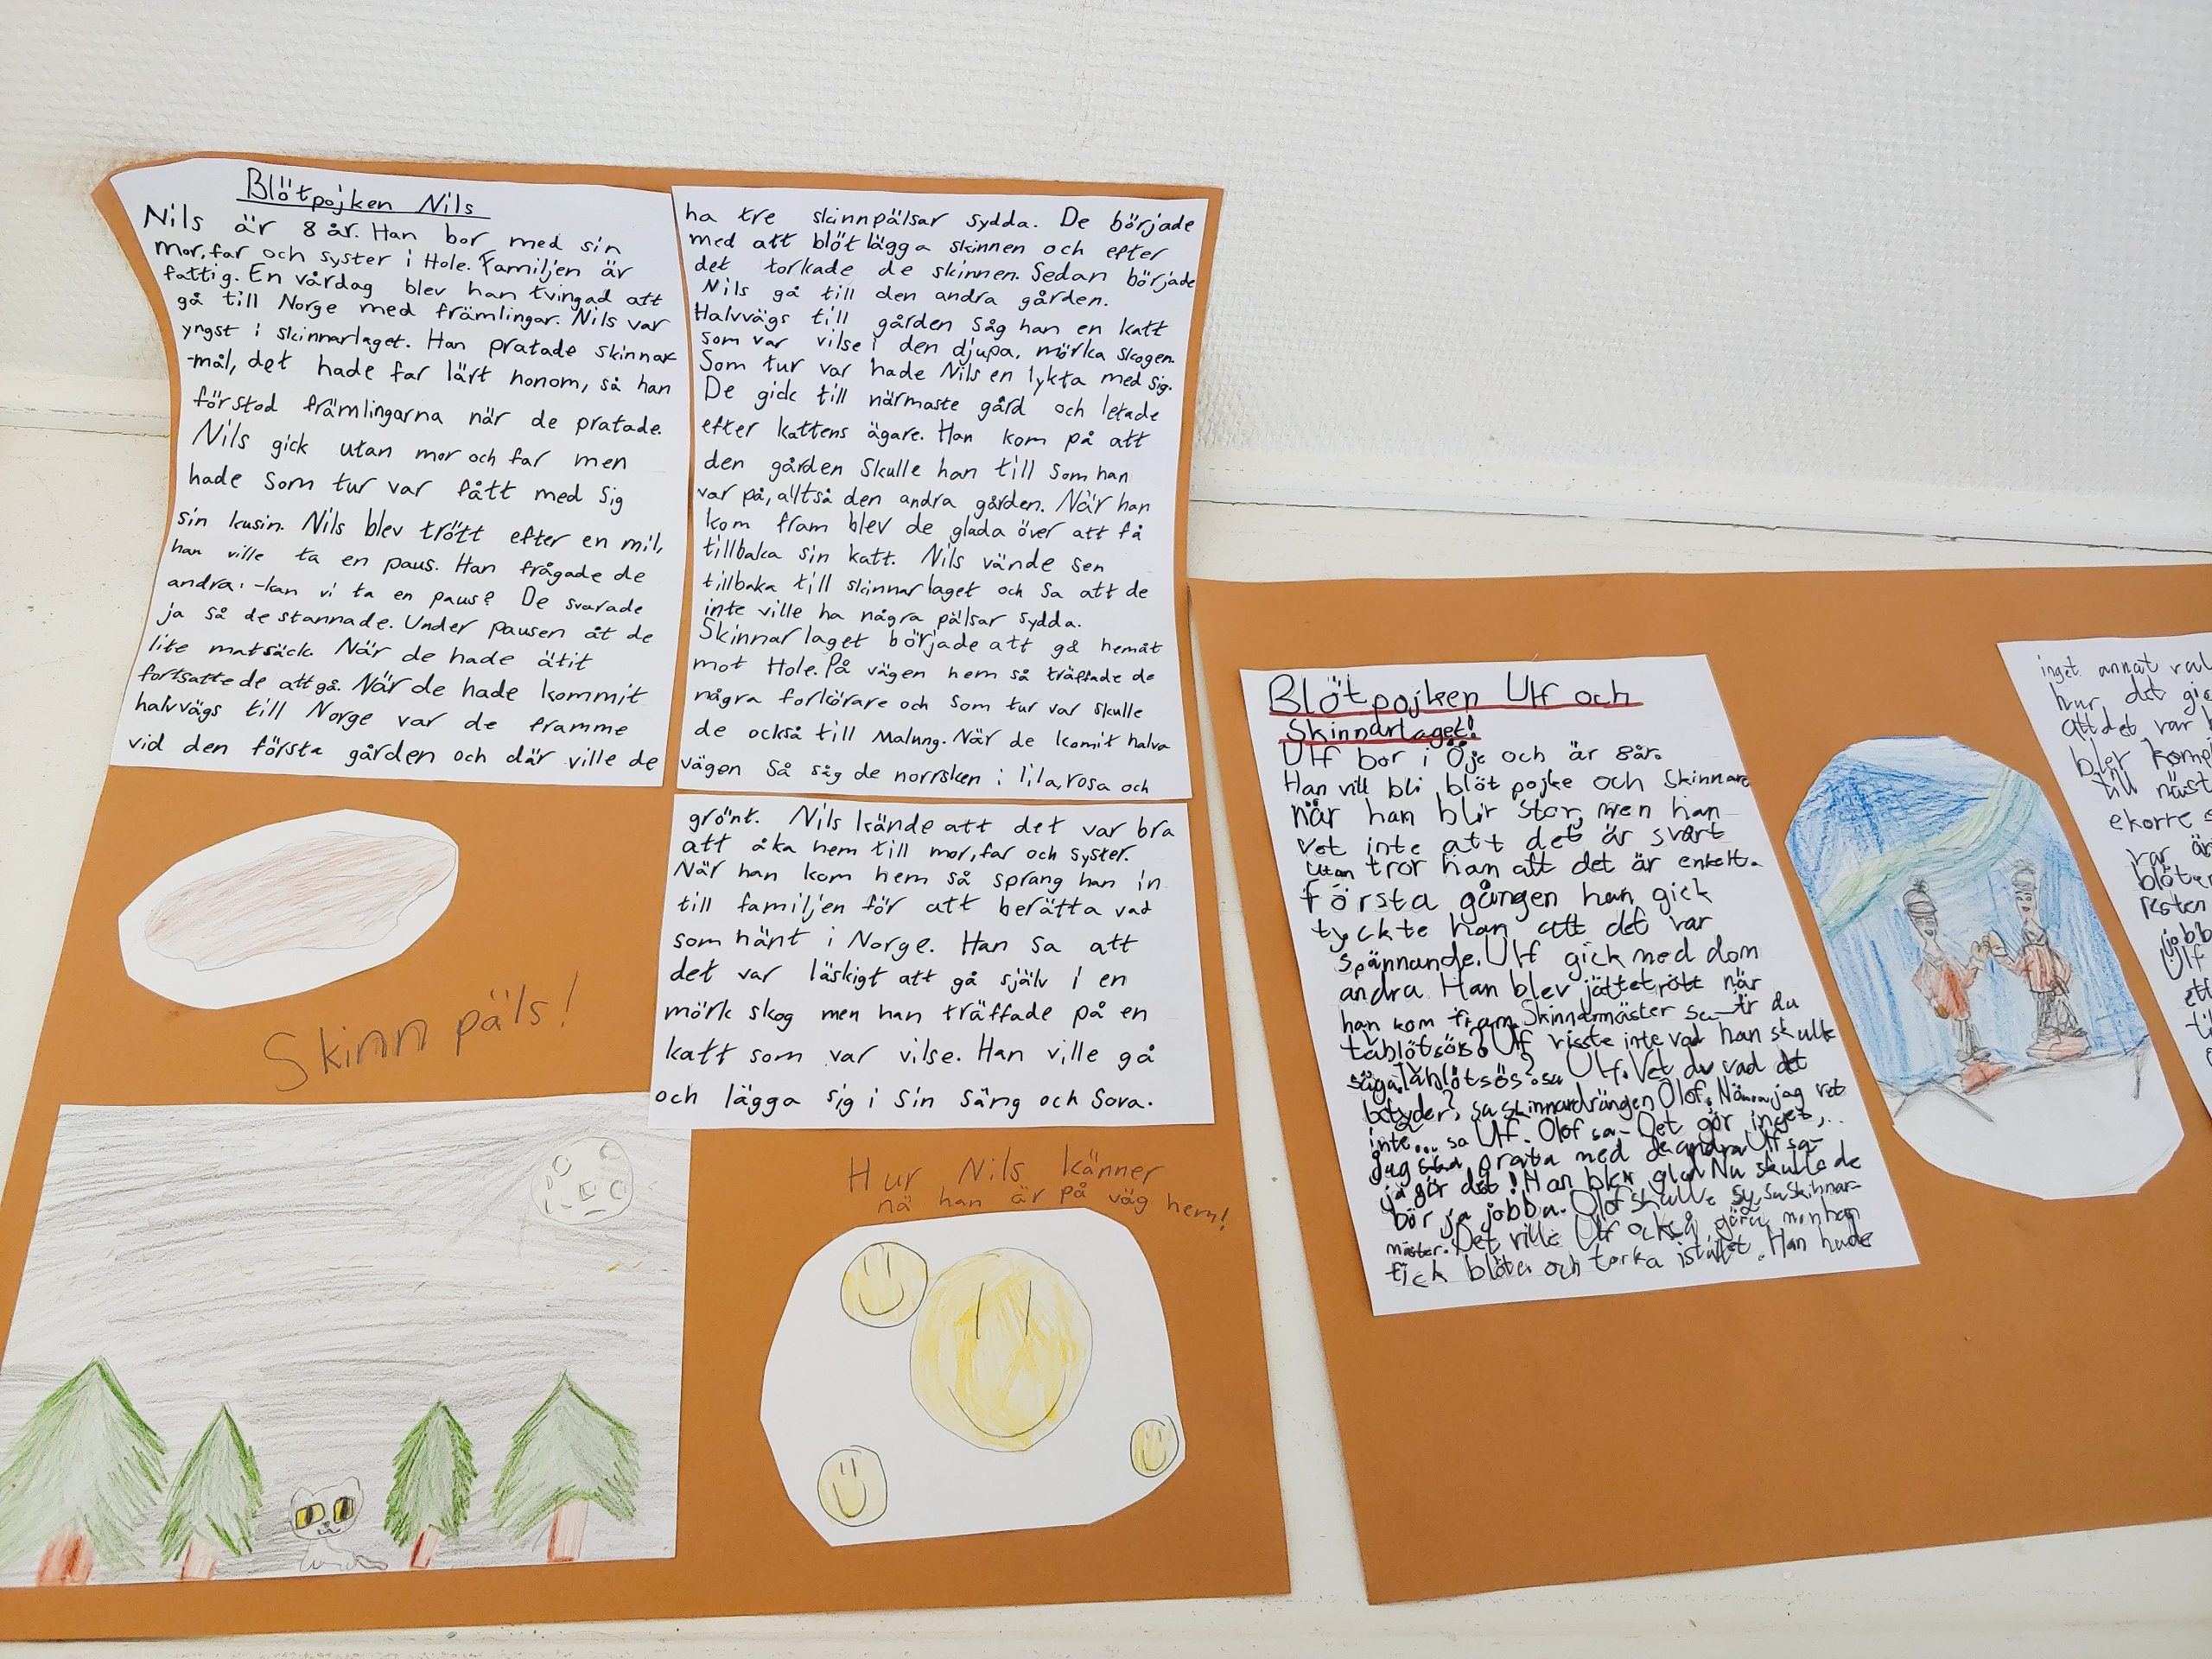 Blötpojken Nils
Nils är 8 år. Han bor med sin
mor, far och syster i Hole. Familjen är
fattig. En vårdag blev han tvingad att
gå till Norge med främlingar. Nils var
yngst i skinnarlaget. Han pratade skinnar
-mål, det hade far lärt honom, så han
förstod främlingarna när de pratade.
Nils gick utan mor och far men
hade som tur var fått med sig
sin kusin. Nils blev trött efter en mil,
han ville ta en paus. Han frågade de
andra: -kan vi ta en paus? De svarade
ja så de stannade. Under pausen åt de
lite matsäck. När de hade ätit
fortsatte de att gå. När de hade kommit
halvvägs till Norge var de framme
vid den första gården och där ville de
ha tre skinnpälsar sydda. De började
med att blötlägga skinnen och efter
det torkade de skinnen. Sedan började
Nils gå till den andra gården.
Halvvägs till gården såg han en katt
som var vilse i den djupa, mörka skogen.
Som tur var hade Nils en lykta med sig.
De gick till närmaste gård och letade
efter kattens ägare. Han kom på att
den gården skulle han till som han
var på, alltså den andra gården. När han
kom fram blev de glada över att få
tillbaka sin katt. Nils vände sen
tillbaka till skinnarlaget och sa att de
inte ville ha några pälsar sydda.
Skinnarlaget började att gå hemåt
mot Hole. På vägen hem så träffade de
några forkörare och som tur var skulle
de också till Malung. När de komit halva
vägen så såg de norrsken i lila, rosa och
grönt. Nils kände att det var bra
att åka hem till mor, far och syster.
När han kom hem så sprang han in
till familjen för att berätta vad
som hänt i Norge. Han sa att
det var läskigt att gå själv i en
mörk skog men han träffade på en
katt som var vilse. Han ville gå
och lägga sig i sin säng och sova.
Skinn päls!
Hur Nils känner
nä han är på väg hem!
Blötpojken Ulf och
Skinnarlaget!
Ulf bor i Öje och är 8år.
Han vill bli blöt pojke och skinnare
när han blir stor, men han
vet inte att det är svårt
utan tror han att det är enkelt.
Första gången han gick
tyckte han att det var
spännande. Ulf gick med dom
andra. Han blev jättetrött när
han kom fram. Skinnarmäster sa - är du
täblötsös? Ulf visste inte vad han skulle
säga. Täblötsös? sa Ulf. Vet du vad det
betyder? sa skinnardrängen Olof. Nä jag vet
inte... sa Ulf. Olof sa - Det gör inget,..
Jag ska prata med de andra Ulf sa-
ja gör det! Han blev glad Nu skulle de
börja jobba. Olof skulle sy sa skinnar-
mäster. Det ville Ulf också göra men han
fick blöta och torka istället. Han hade
inget annat
hur det
att det var
blev
till
ekorre
var
resten
Ulf